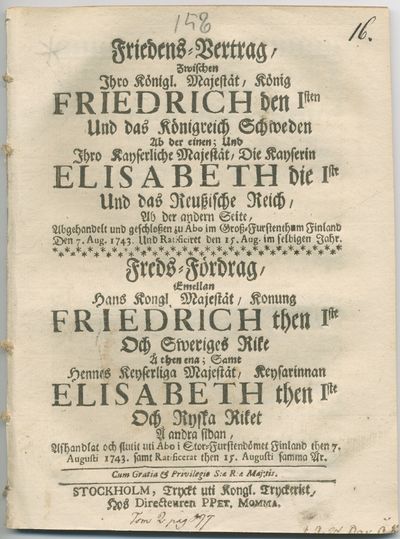 158
16.
Friedens-Vertrag,
Zwischen
Ihro Königl. Majestät, König
FRIEDRICH den Isten
Und das Königreich Schweden
Ab der einen; Und
Ihro Kayserliche Majestät, Die Kayserin
ELISABETH die Iste
Und das Reußische Reich,
Ab der andern Seite,
Abgehandelt und geschloßen zu Åbo im Groß-Furstenthum Finland
Den 7. Aug. 1743. Und Ratificiret den 15. Aug. im selbigen Jahr.
Freds-Fördrag,
Emellan
Hans Kongl. Majestät, Konung
FRIEDRICH then Iste
Och Sweriges Rike
Å then ena; Samt
Hennes Keyserliga Majestät, Keysarinnan
ELISABETH then Iste
Och Ryska Riket
Å andra sidan,
Afhandlat och slutit uti Åbo i Stor-Furstendömet Finland then 7.
Augusti 1743. samt Ratificerat then 15. Augusti samma År.
Cum Gratia & Privilegio S:æ R:æ Maj:tis.
STOCKHOLM, Tryckt uti Kongl. Tryckeriet,
Hos Directeuren PPET. MOMMA.
Tom 2 pag